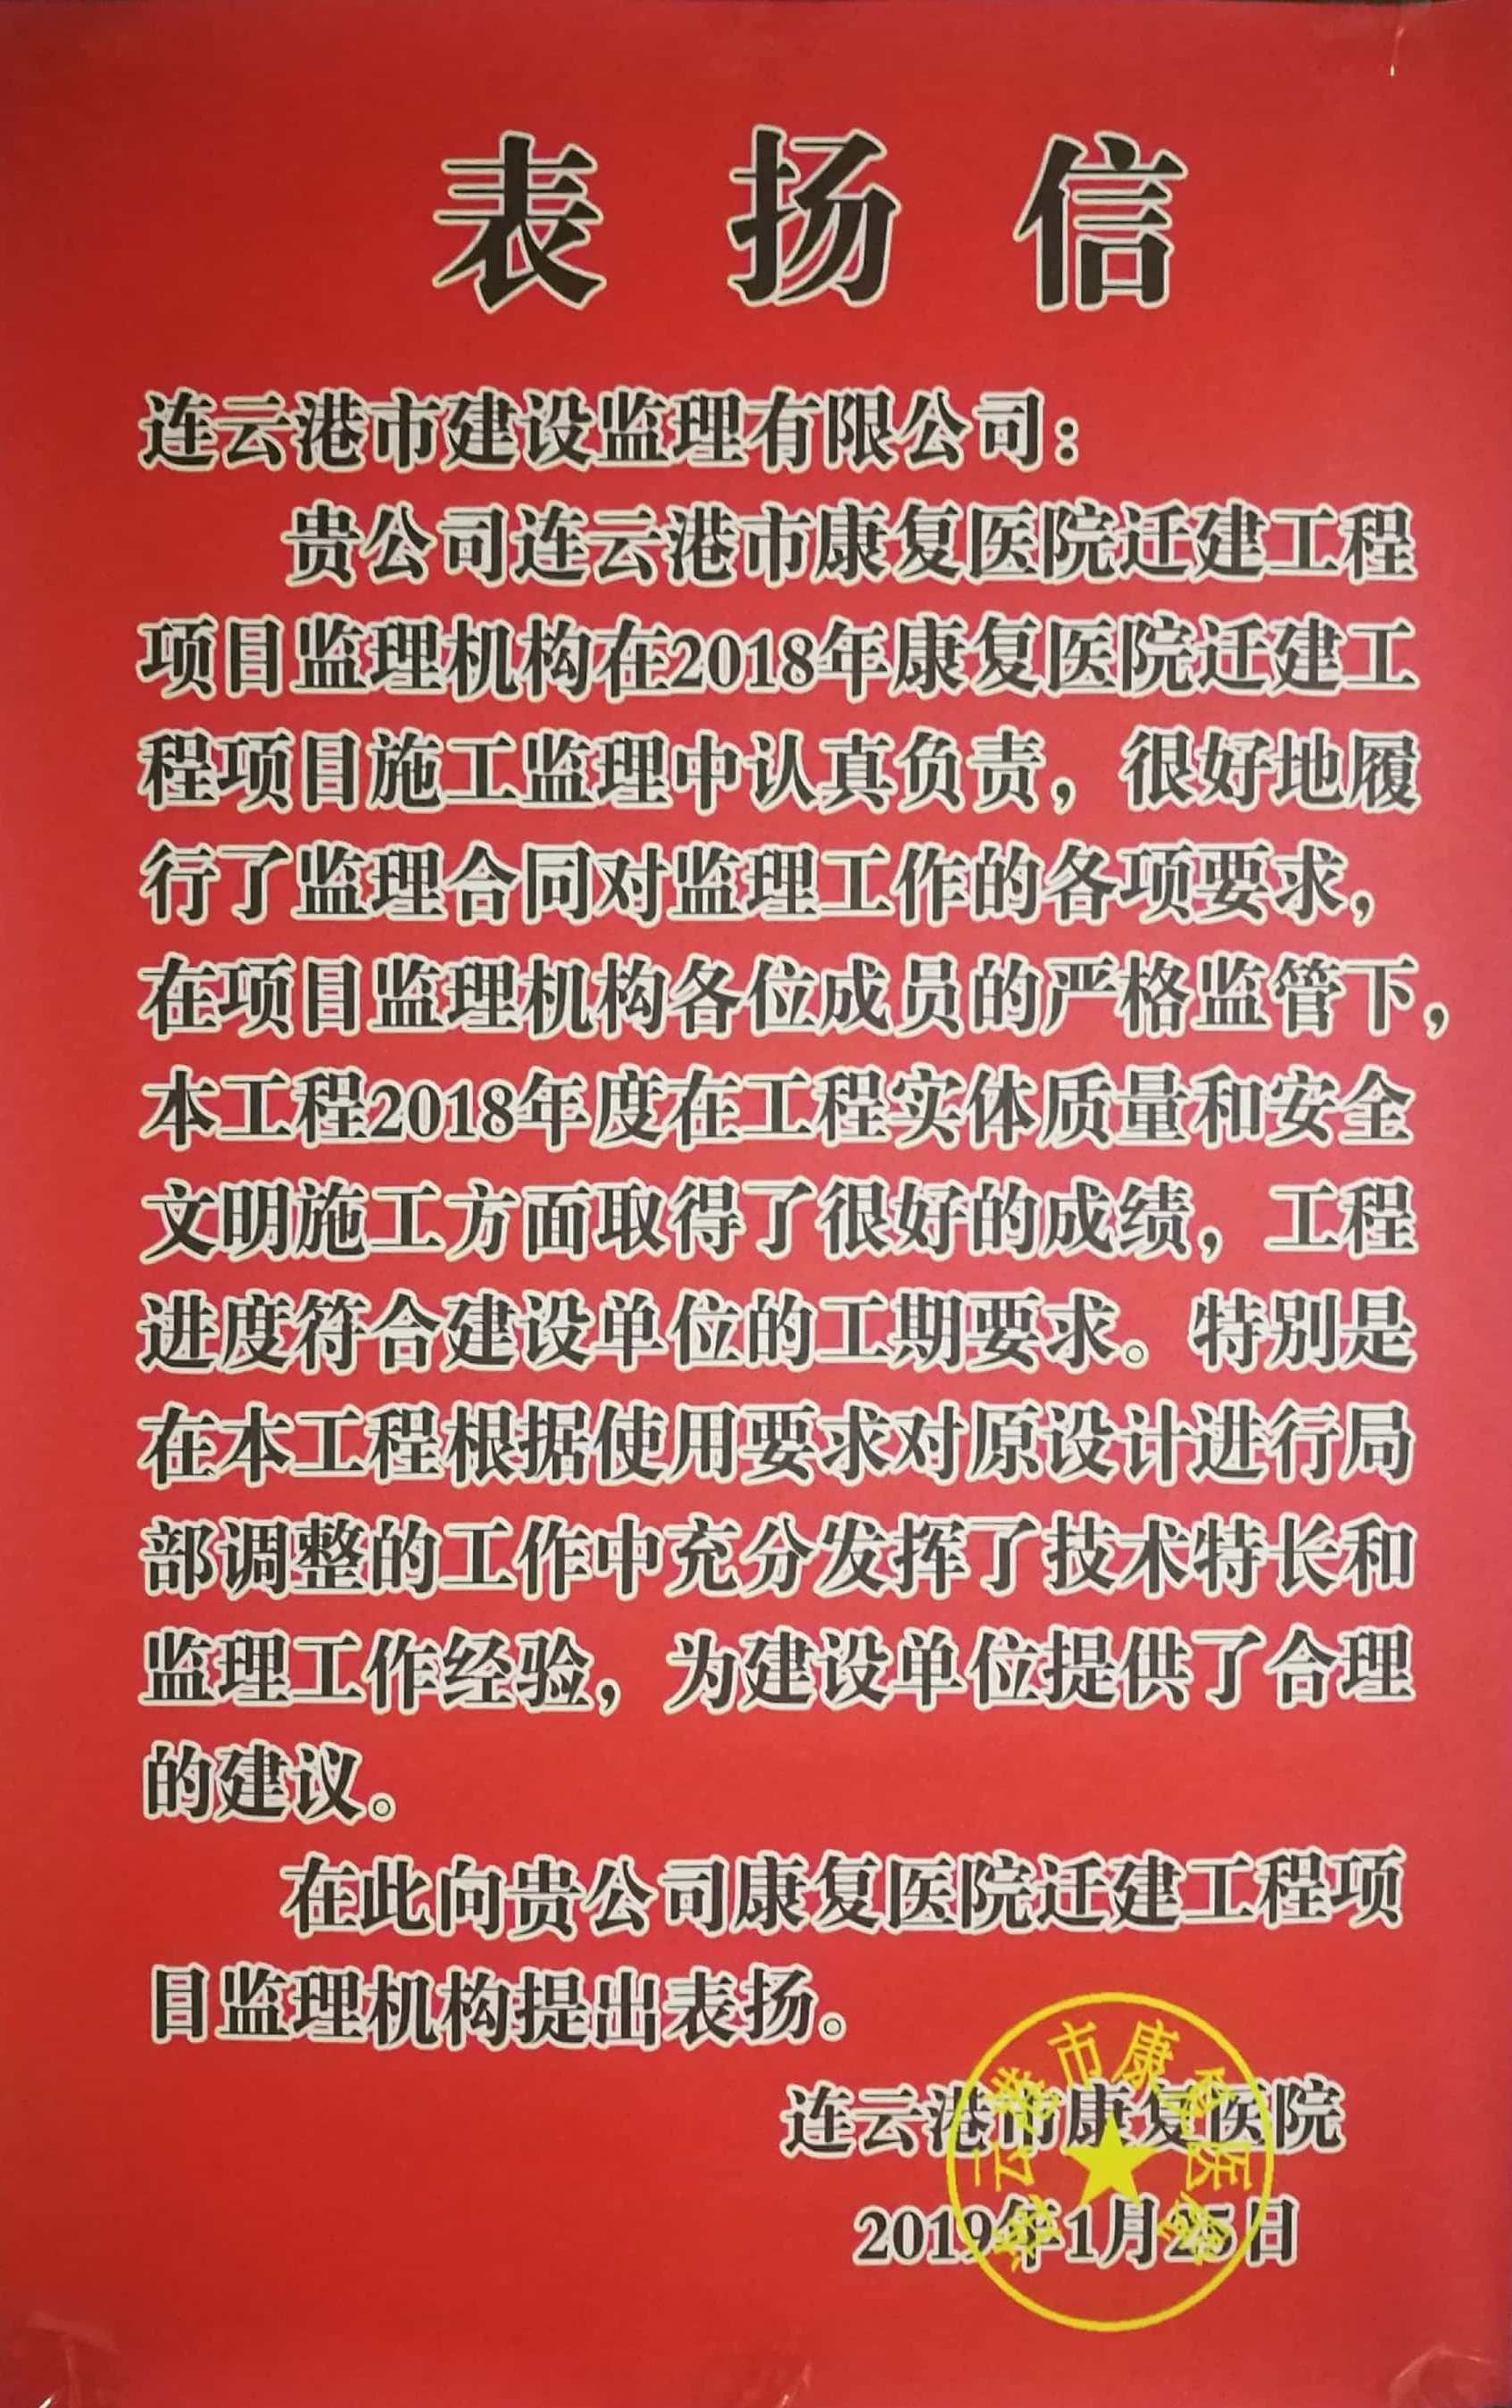 表扬信
连云港市建设监理有限公司：
贵公司连云港市康复医院迁建工程
项目监理机构在2018年康复医院迁建工
程项目施工监理中认真负责，很好地履
行了监理合同对监理工作的各项要求，
在项目监理机构各位成员的严格监管下，
本工程2018年度在工程实体质量和安全
文明施工方面取得了很好的成绩，工程
进度符合建设单位的工期要求。特别是
在本工程根据使用要求对原设计进行局
部调整的工作中充分发挥了技术特长和
监理工作经验，为建设单位提供了合理
的建议。
在此向贵公司康复医院迁建工程项
目监理机构提出表扬。
连云港市康复医院
2019年1月25日
连云港市康复医院